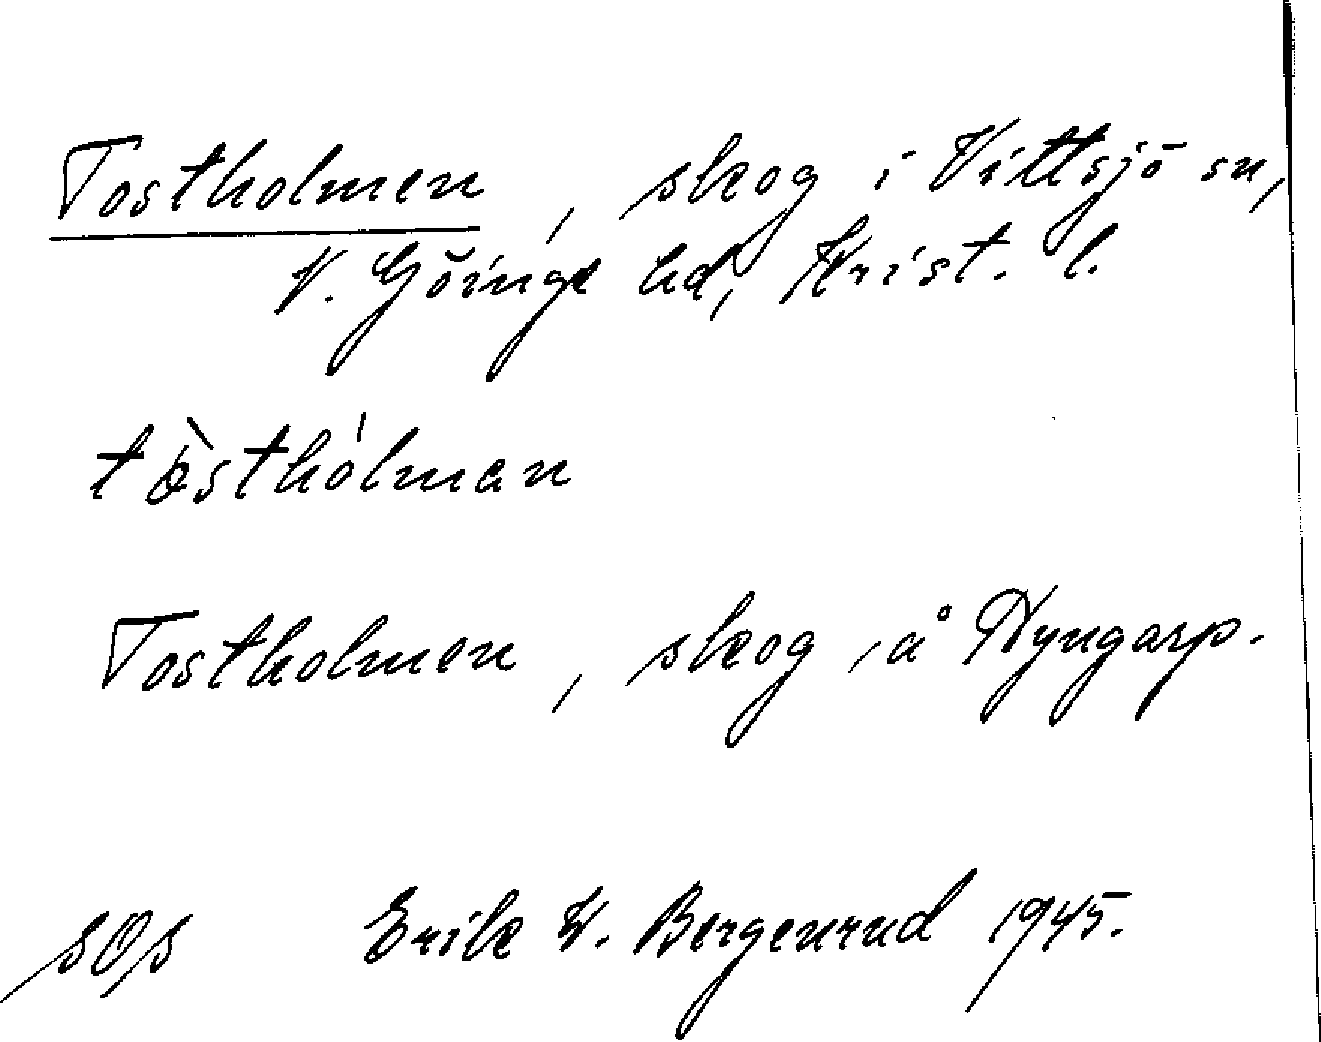 Tostholmen, skog i Vittsjö sn,
V. Göinge hd, Krist. l.
tòsthólman
Tostholmen, skog, å Nyngarp.
sOs Erik W. Bergenrud 1945.